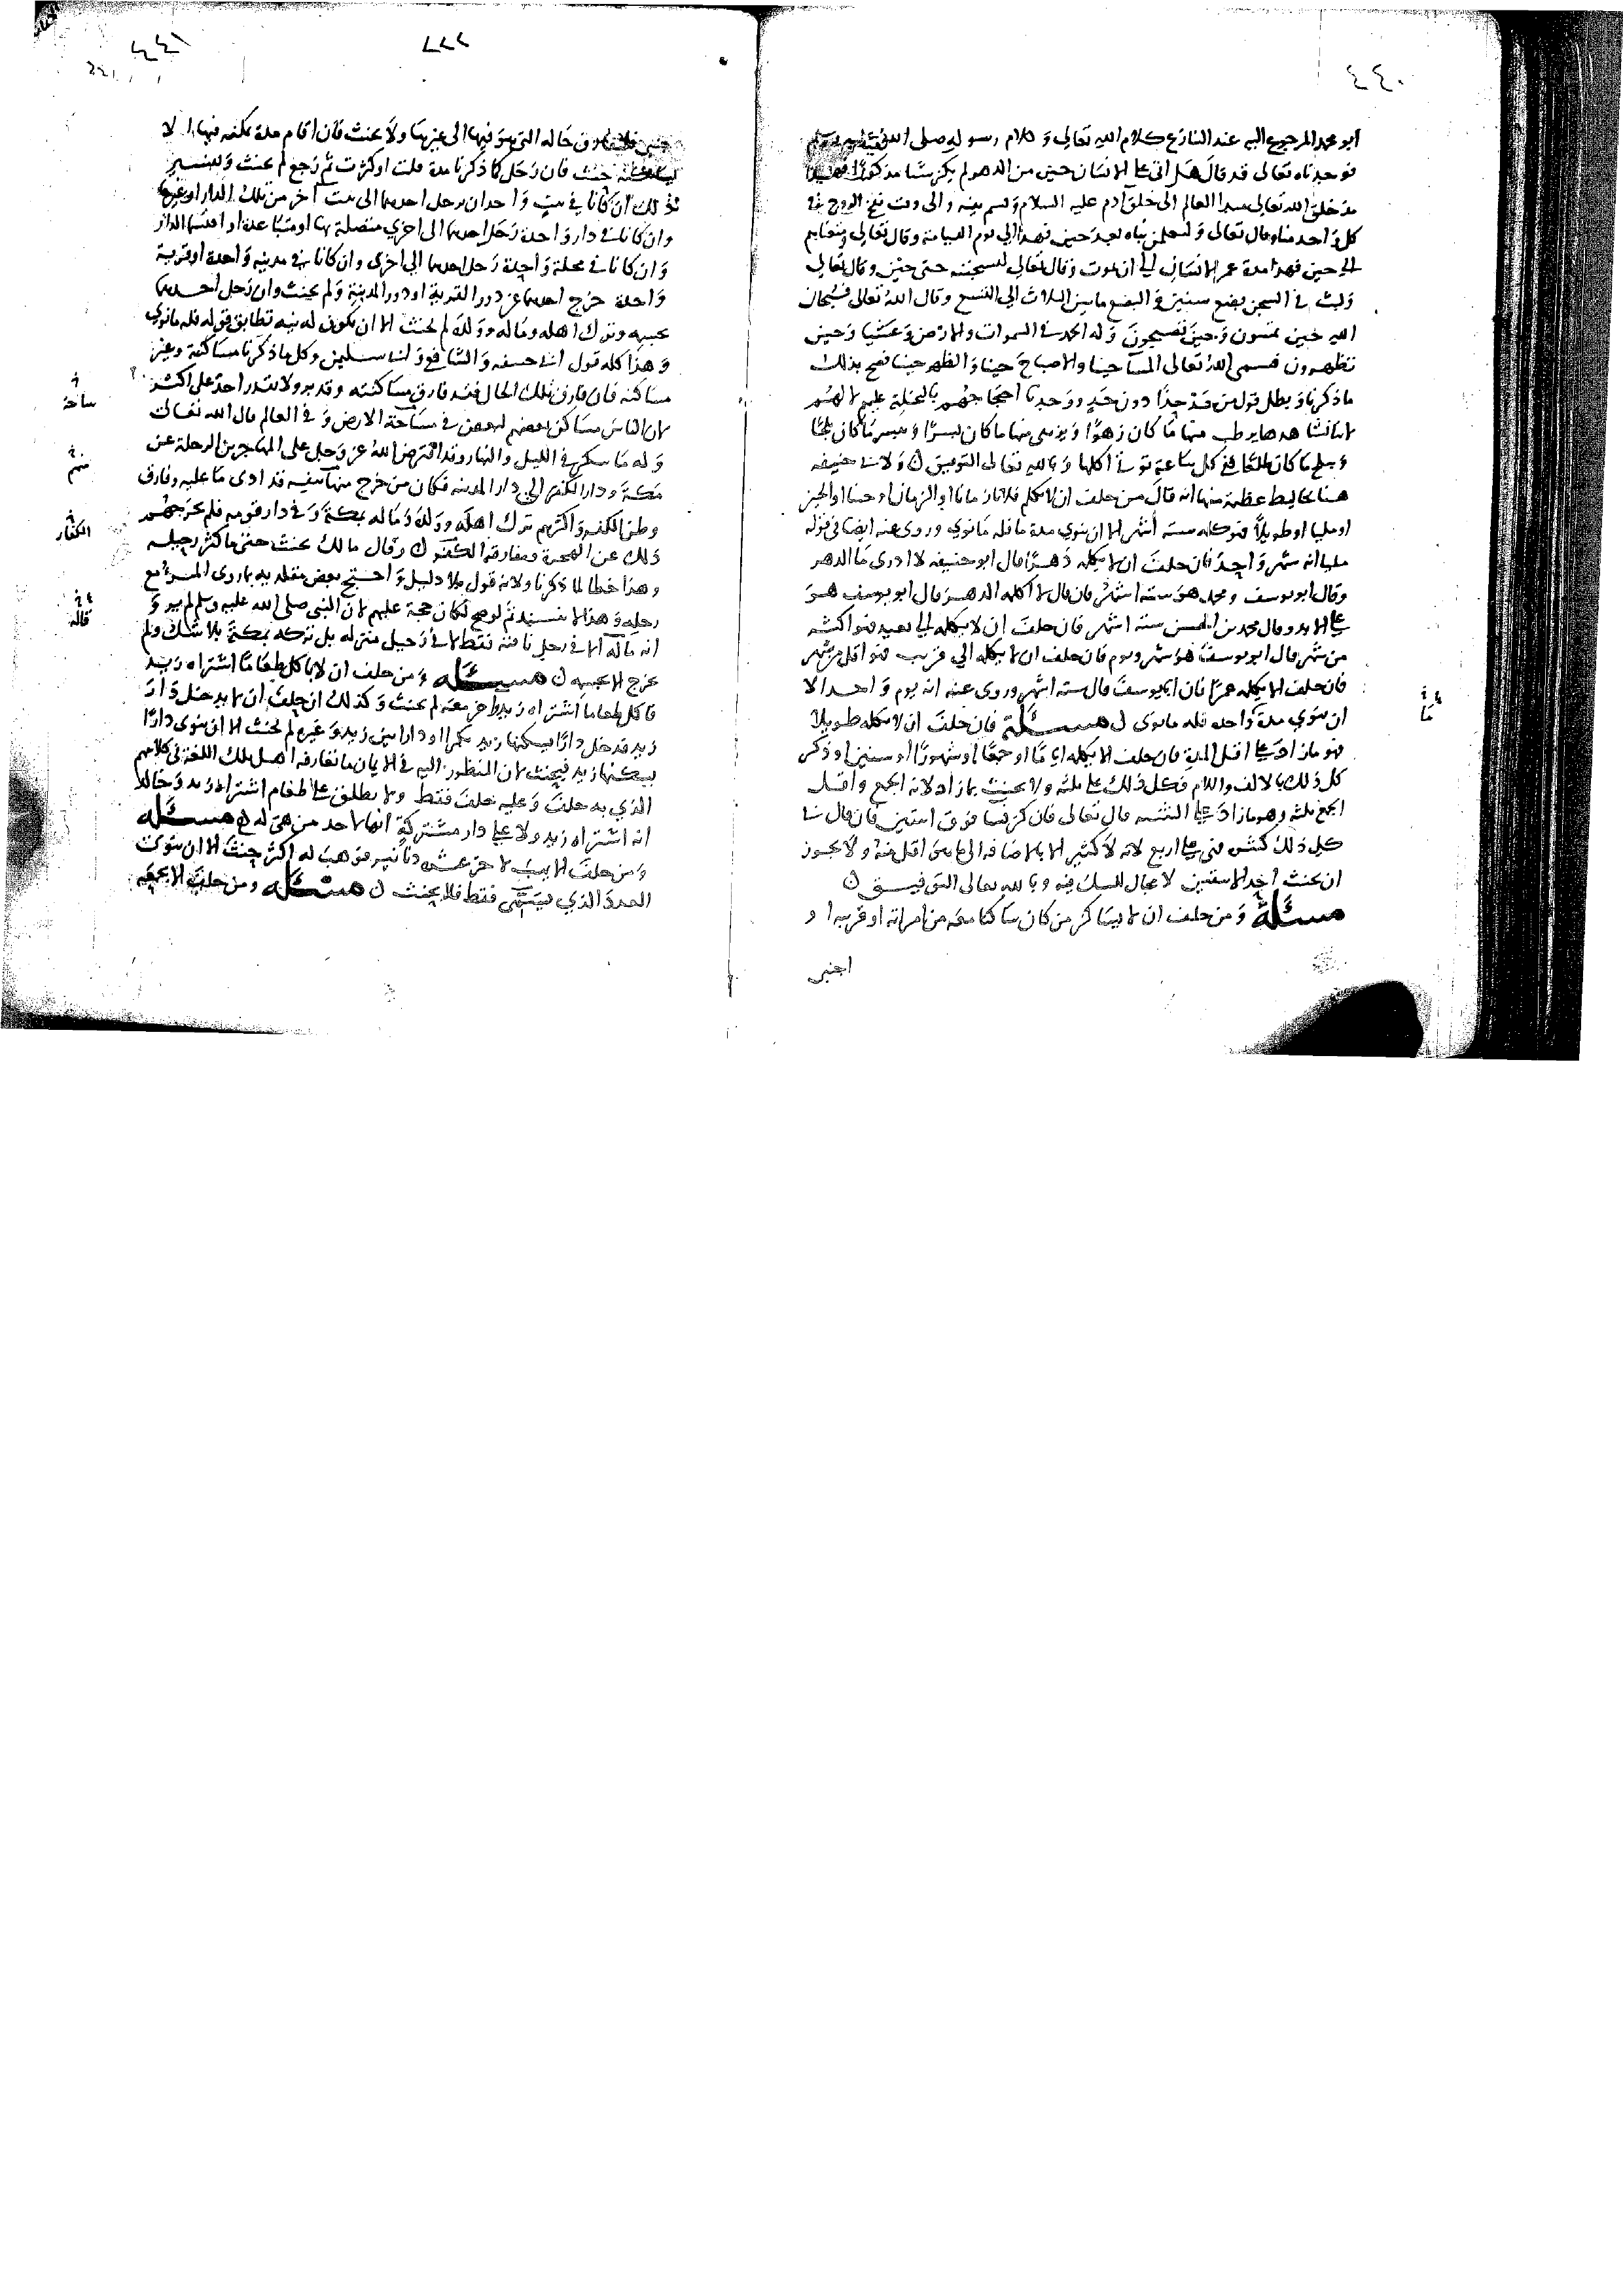 ٤٤٠
ابو محمد المرجوع اليه عند التنازع كلام الله تعالى وكلام رسوله صلى الله
فوجدناه تعالى قد قال هل اتى على الانسان حين من الدهر لم يكن شيئا مذكورا فهذا
مذ خلق الله تعالى مبدا العالم الى خلق ادم عليه السلام والى وقت نفخ الروح في
كل واحد منا وقال تعالى ولتعلمن نباه بعد حين فهذا الى يوم القيامة وقال تعالى ومتعناهم
الى حين فهذا مدة عمر الانسان الى ان يموت وقال تعالى ليسجننه حتى حين وقال تعالى
ولبث في السجن بضع سنين والبضع ما بين الثلاث الى التسع وقال الله تعالى فسبحان
الله حين تمسون وحين تصبحون وله الحمد في السموات والارض وعشيا وحين
تظهرون فسمى الله تعالى المسا حينا والاصباح حينا والظهر حينا فصح بذلك
ما ذكرنا وبطل قول من حد حدا دون حد ووجدنا احتجاجهم بالنخلة عليهم لا لهم
لاننا نشاهدها يرطب منها ما كان زهوا ويزهى منها ما كان بسرا ويبسر ما كان بلحا
ويبلح ما كان طلعا في كل ساعة تؤتي اكلها وبالله تعالى التوفيق ن ولابي حنيفه
هنا تخاليط عظيمة منها انه قال من حلف ان لا يكلم فلانا زمانا او الزمان او حينا او الحين
او مليا او طويلا فهو كله ستة أشهر الا ان ينوي مدة ما فله ما نوى وروى عنه ايضا في قوله
مليا انه شهر واحد فان حلف ان لا يكلمه دهرا قال ابو حنيفه لا ادري ما الدهر
وقال ابو يوسف ومحمد هو ستة اشهر فان قال لا اكلمه الدهر قال ابو يوسف هو
على الابد وقال محمد بن الحسن ستة اشهر فان حلف ان لا يكلمه الى بعيد فهو اكثر
من شهر قال ابو يوسف هو شهر ويوم فان حلف ان لا يكلمه الى قريب فهو اقل من شهر
فان حلف الا يكلمه عمرا فان ابا يوسف قال ستة اشهر وروى عنه انه يوم واحد الا
ان ينوي مدة واحدة فله ما نوى ن مسئلة فان حلف ان لا يكلمه طويلا
فهو ما زاد على اقل المدة فان حلف الا يكلمه اياما او جمعا او شهورا او سنين او ذكر
كل ذلك بالالف واللام فكل ذلك على ثلثه ولا يحنث بما زاد لانه الجمع واقل
الجمع ثلثه وهو ما زاد على التثنيه قال تعالى فان كن نسا فوق اثنتين فان قال في
كل ذلك كثيره فهي على اربع لانه لا كثير الا بالاضافه الى ما هو اقل منه ولا يجوز
ان يحنث احد الا بيقين لا مجال للشك فيه وبالله تعالى التوفيق ن
مسئلة ومن حلف ان لا يساكن من كان ساكنا معه من امراته او قريبه او
اجنبي
ما
٤٤١
اجنبي فليفارق حاله التي هو فيها الى غيرها ولا يحنث فان اقام مدة يمكنه فيها ان لا
يساكنه حنث فان رحل كما ذكرنا مدة قلت او كثرت ثم رجع لم يحنث وتفسير
ذلك ان كانا في بيت واحد ان يرحل احدهما الى بيت آخر من تلك الدار او غيرها
وان كانا في دار واحدة رحل احدهما الى اخرى متصلة بها او متباعدة او اقتسما الدار
وان كانا في محلة واحدة رحل احدهما الى اخرى وان كانا في مدينه واحدة او قرية
واحدة خرج احدهما عن دور القرية او دور المدينة ولم يحنث وان رحل احدهما
بجسمه وترك اهله وماله وولده لم يحنث الا ان يكون له نيه تطابق قوله فله ما نوي
وهذا كله قول ابي حنيفه والشافعي وابي سليمن وكل ما ذكرنا مساكنة وغير
مساكنه فان فارق تلك الحال فقد فارق مساكنته وقد بر ولا يقدر احد على اكثر
لان الناس مساكن بعضهم لبعض في مساحة الارض وفي العالم قال الله تعالى
وله ما سكن في الليل والنهار وقد افترض الله عز وجل على المهاجرين الرحلة عن
مكة ودار الكفر الى دار المدينه فكان من خرج منها بنفسه قد ادى ما عليه وفارق
وطن الكفر واكثرهم ترك اهله وولده وماله بمكة وفي دار قومه فلم يخرجهم
ذلك عن الهجرة ومفارقة الكفر ن وقال مالك يحنث حتى ما كثر رحله
وهذا خطا لما ذكرنا ولانه قول بلا دليل واحتج بعض مقلديه بما روى المرء مع
رحله وهذا لا يسند ثم لو صح لكان حجة عليهم لان النبي صلى الله عليه وسلم لم يرد
انه ماله الا في رحل ناقته فقط لا في رحيل منزله بل تركه بمكة بلا شك ولم
يخرج الا بجسمه ن مسئله ومن حلف ان لا ياكل طعاما اشتراه زيد
فاكل طعاما اشتراه زيد واخر معه لم يحنث وكذلك ان حلف ان لا يدخل دار
زيد فدخل دارا يسكنها زيد بكرا او دارا بين زيد وغيره لم يحنث الا ان ينوى دارا
يسكنها زيد فيحنث لان المنظور اليه في الايمان ما تعارفه اهل تلك اللغة في كلامهم
الذي به حلف وعليه حلف فقط ولا يطلق على طعام اشتراه زيد وخالد
انه اشتراه زيد ولا على دار مشتركة انها لاحد من هي له ن مسئله
ومن حلف الا يهب لاخر عشرة دنانير فوهب له اكثر حنث الا ان ينوى
العدد الذي يسمي فقط فلا يحنث ن مسئله ومن حلف الا يجمعه
ساحة
منهم
الكفار
قاله